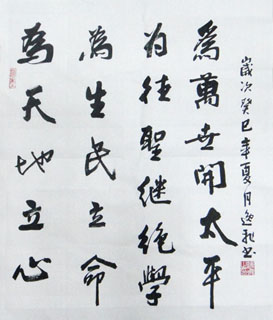 為天地立心
為生民立命
为往聖继绝學
為萬世開太平
歲次癸巳年夏月